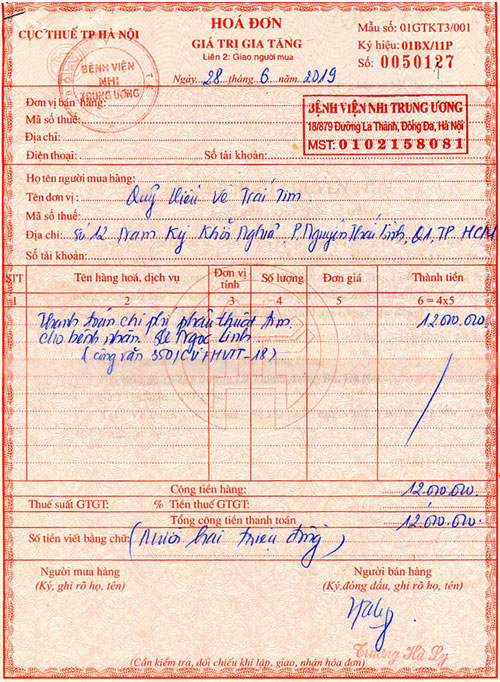 CỤC THUẾ TP HÀ NỘI
HOÁ ĐƠN
GIÁ TRỊ GIA TĂNG
Liên 2: Giao người mua
Ngày 28 tháng 6 năm 2019
Mẫu số: 01GTKT3/001
Ký hiệu: 01BX/11P
Số: 0050127
BỆNH VIỆN
NHI
TRUNG ƯƠNG
Đơn vị bán hàng:
Mã số thuế:
Địa chỉ:
Điện thoại: Số tài khoản:
BỆNH VIỆN NHI TRUNG ƯƠNG
18/879 Đường La Thành, Đống Đa, Hà Nội
MST: 0102158081
Họ tên người mua hàng:
Tên đơn vị: Quỹ Hiểu Về Trái Tim
Mã số thuế:
Địa chỉ: Số 12 Nam Kỳ Khởi Nghĩa, P. Nguyễn Thái Bình, Q1, TP HCM
Số tài khoản:
STT Tên hàng hoá, dịch vụ Đơn vị tính Số lượng Đơn giá Thành tiền
1 2 3 4 5 6 = 4x5
Thanh toán chi phí phẫu thuật tim 12.000.000
cho bệnh nhân Lê Ngọc Linh
(công văn 350/CV-HVTT-18)
Cộng tiền hàng: 12.000.000
Thuế suất GTGT: % Tiền thuế GTGT:
Tổng cộng tiền thanh toán 12.000.000
Số tiền viết bằng chữ: (Mười hai triệu đồng)
Người mua hàng
(Ký, ghi rõ họ, tên)
Người bán hàng
(Ký,đóng dấu, ghi rõ họ, tên)
Trương Hà Ly
(Cần kiểm tra, đối chiếu khi lập, giao, nhận hóa đơn)